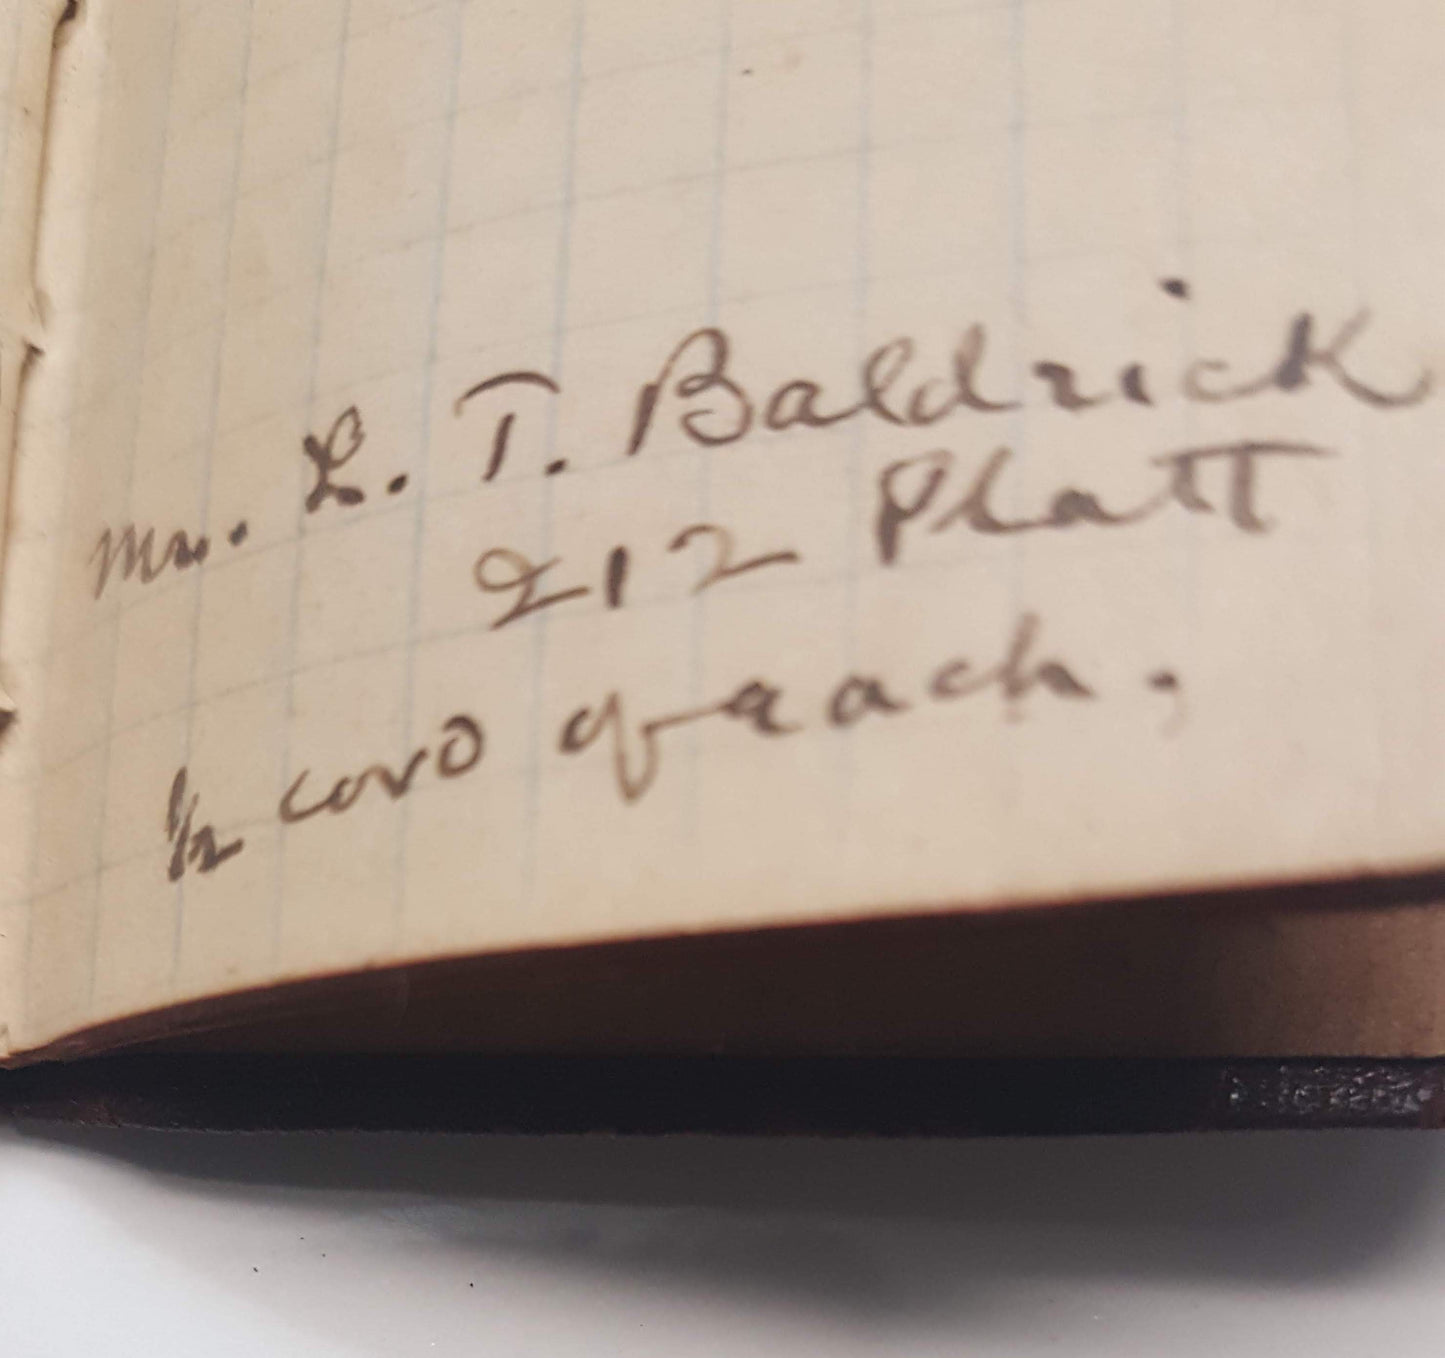 Mr. L. T. Baldrick
212 Platt
1/2 cord of each.